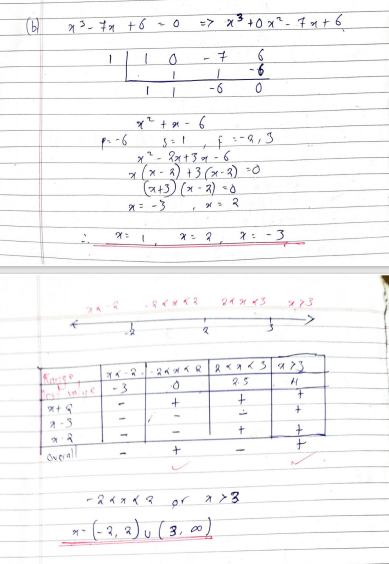 (b) x³ - 7x + 6 = 0 => x³ + 0x² - 7x + 6
1 | 1 0 -7 6
1 1 -6
1 1 -6 0
x² + x - 6
P = -6 S = 1 , f = -2, 3
x² - 2x + 3x - 6
x(x - 2) + 3(x - 2) = 0
(x+3)(x - 2) = 0
x = -3 , x = 2
∴ x = 1 , x = 2 , x = -3
x < -2 -2 < x < 2 2 < x < 3 x > 3
-2 2 3
Range x < -2 -2 < x < 2 2 < x < 3 x > 3
Test value -3 0 2.5 4
x + 2 - + + +
x - 3 - - - +
x - 2 - - + +
Overall - + - +
✓ ✓
-2 < x < 2 or x > 3
x = (-2, 2) ∪ (3, ∞)